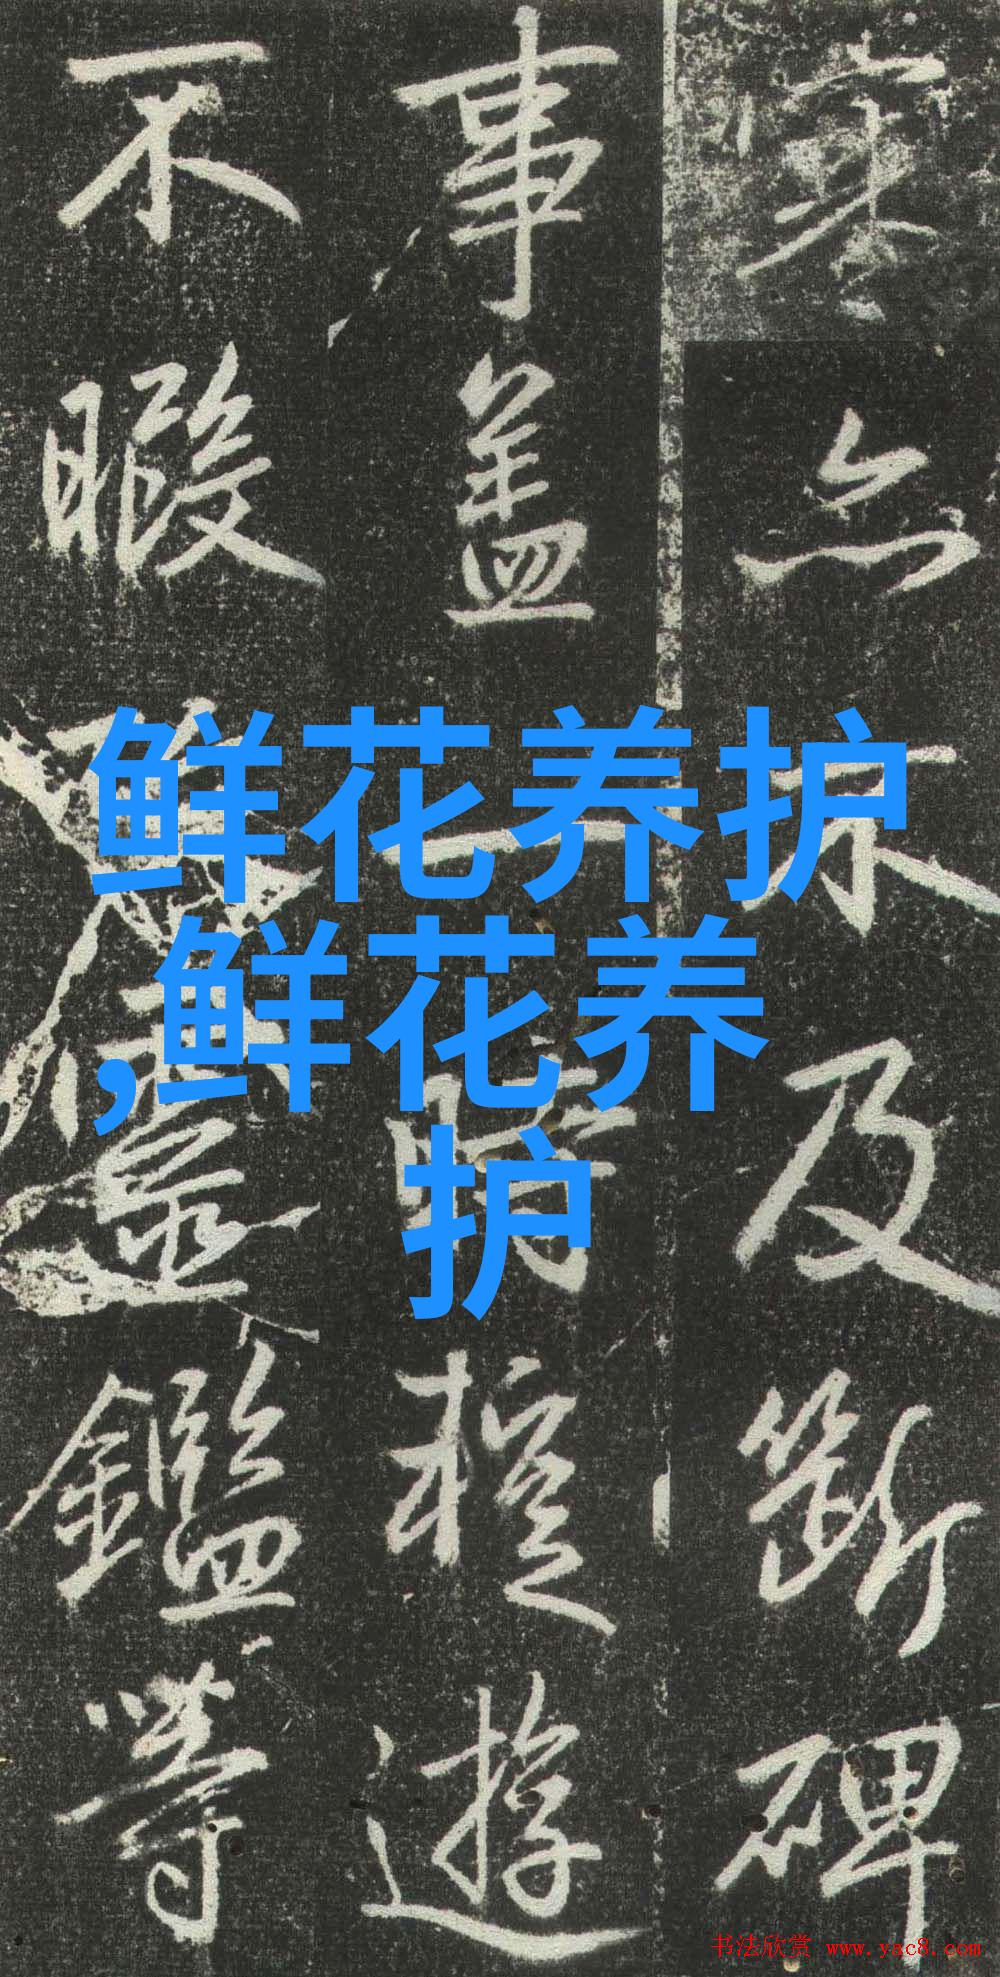 鲜花养护
,鲜花养
护
不及斷碑
事盖一時遊
不暇鑑等
书法欣赏 www.yac8.com